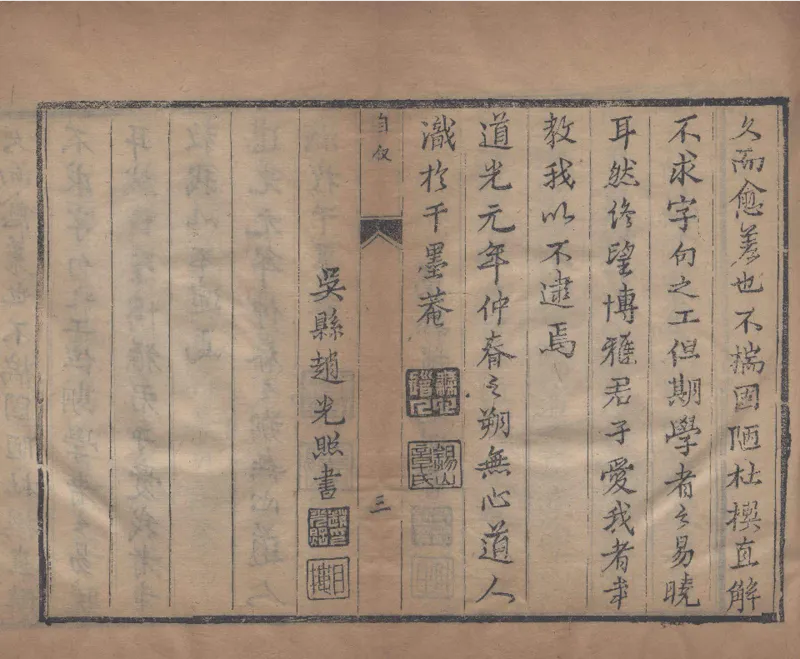 久而愈差也不揣固陋杜撰直解
不求字句之工但期學者之易曉
耳然終望博雅君子愛我者幸
教我以不逮焉
道光元年仲春之朔無心道人
識於千墨菴
無心道人
錫山章氏
自叙
三
吳縣趙光照書